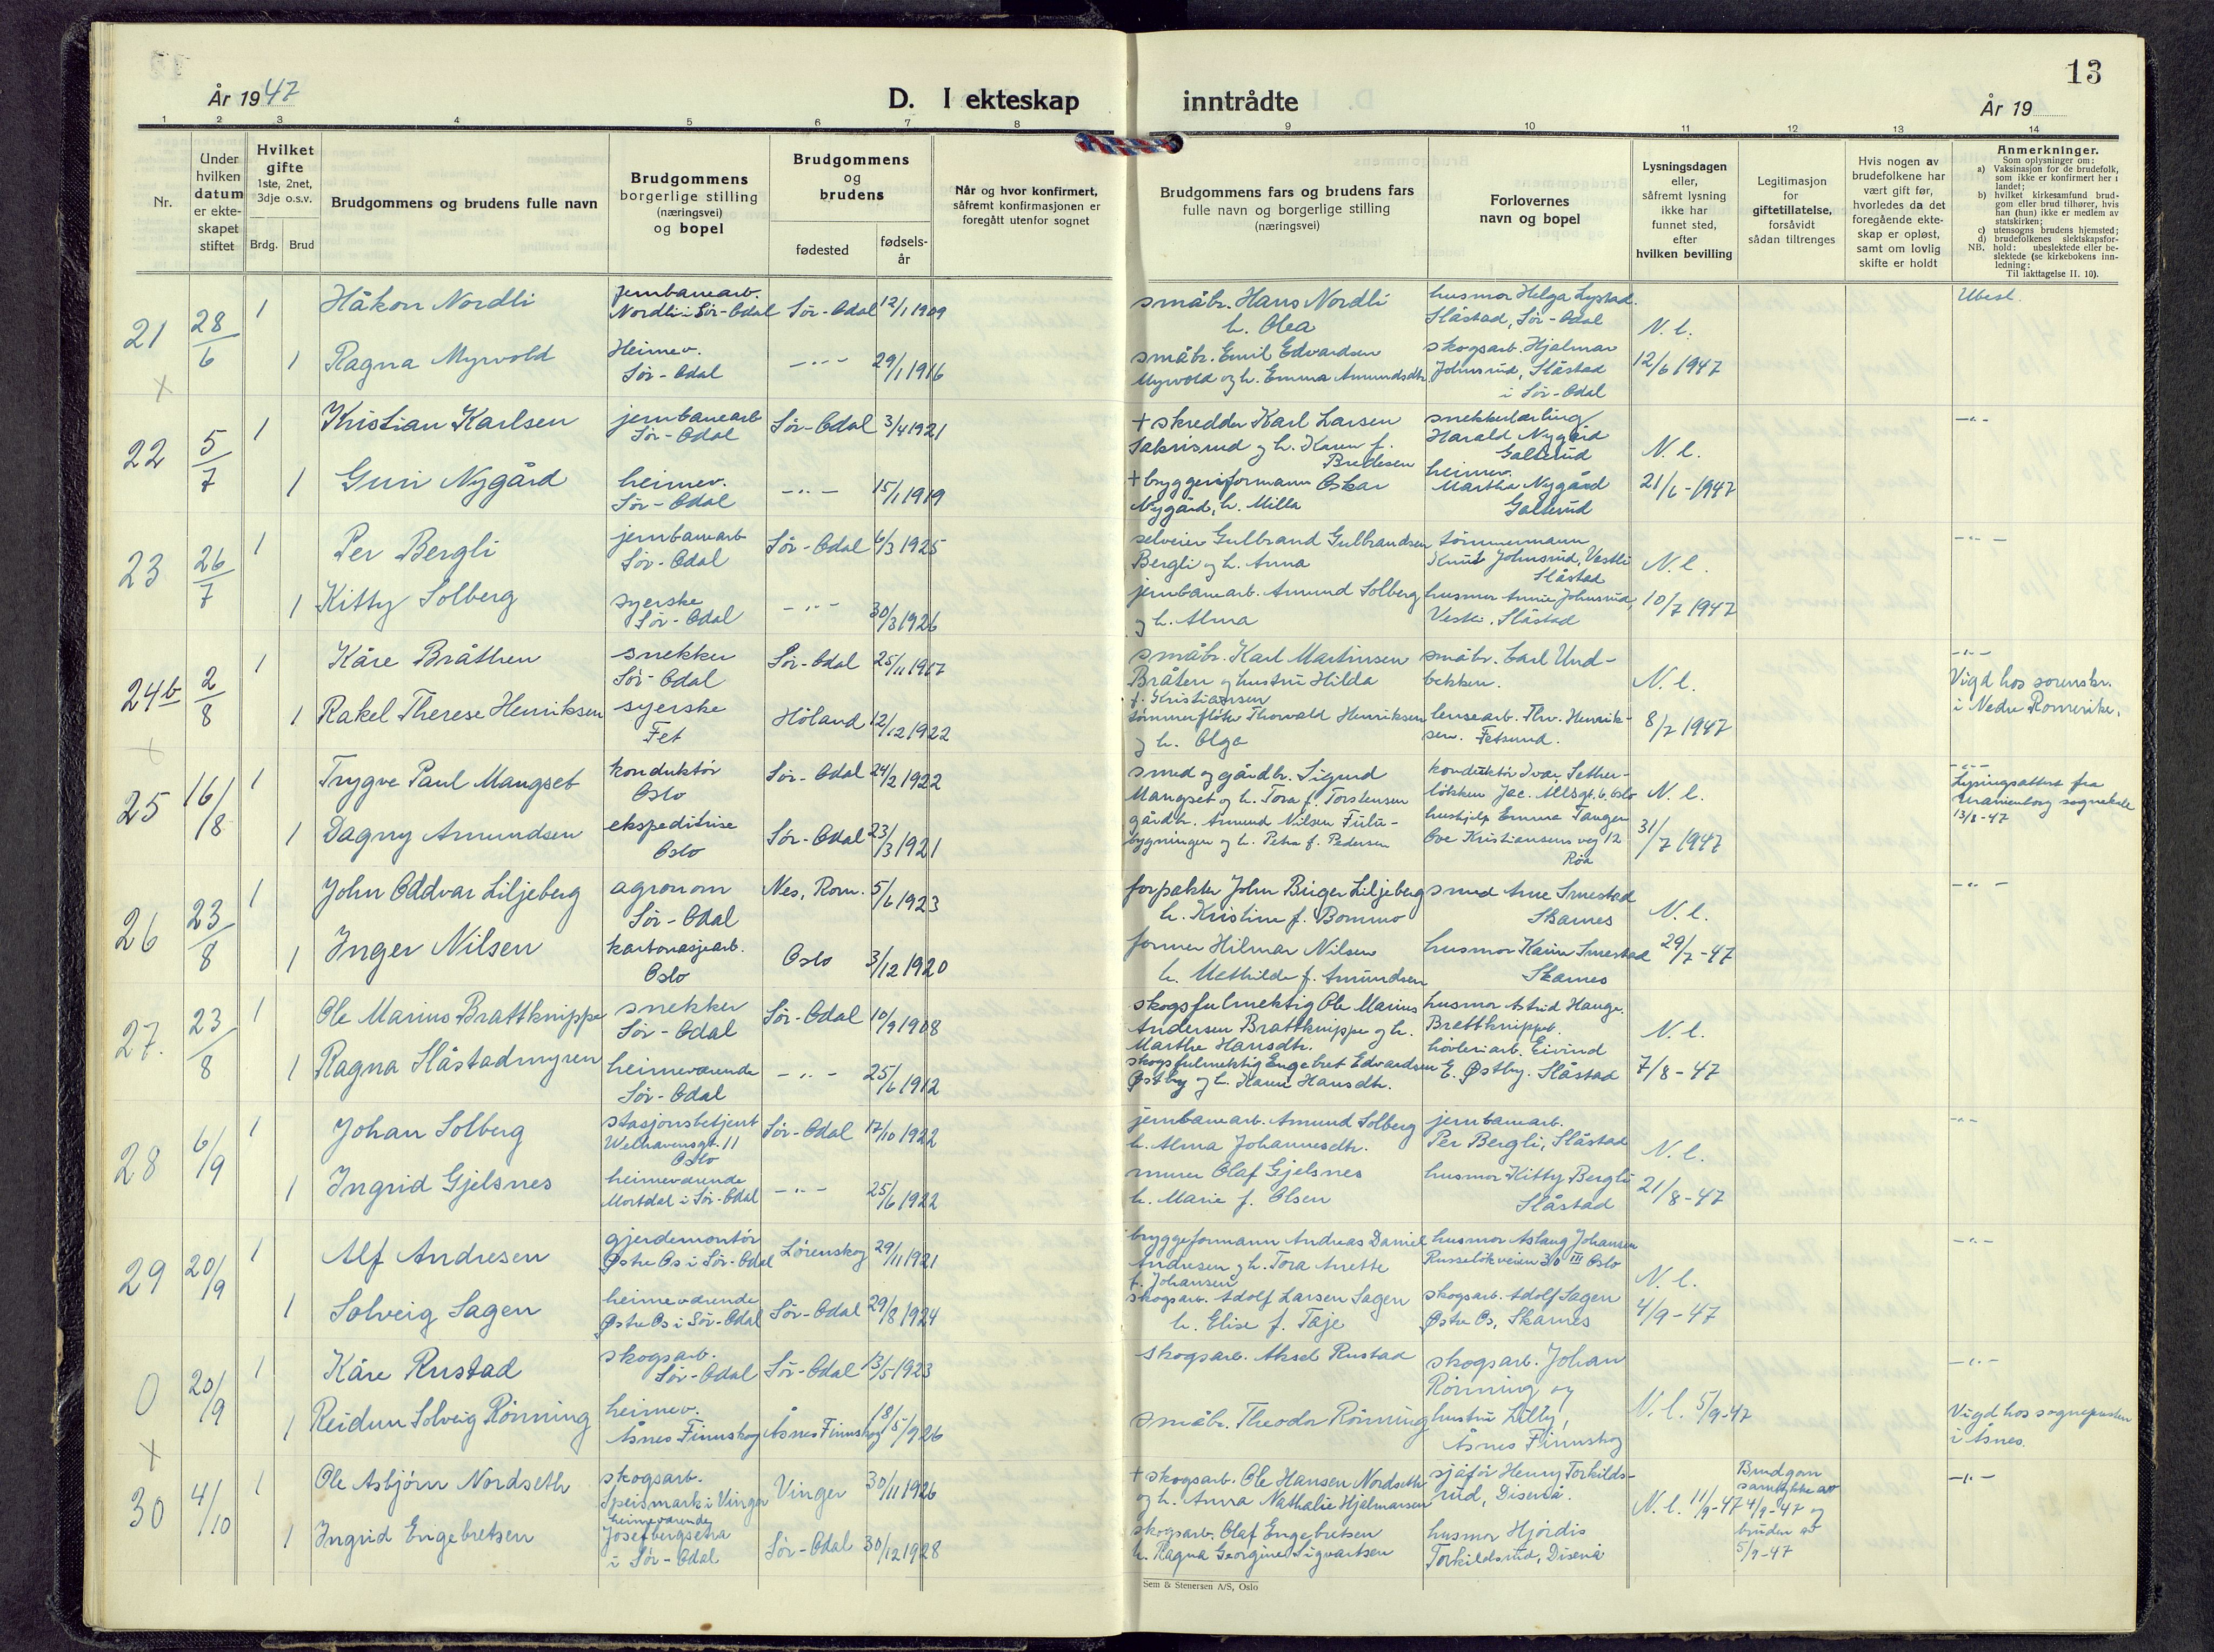 13
År 1947
D. I ekteskap inntrådte
År 19
1 2 3 4 5 6 7 8 9 10 11 12 13 14
Nr.
Under hvilken datum er ekteskapet stiftet
Hvilket gifte
1ste, 2net, 3dje o.s.v.
Brdg. Brud
Brudgommens og brudens fulle navn
Brudgommens borgerlige stilling (næringsvei) og bopel
Brudgommens og brudens
fødested
fødsels-år
Når og hvor konfirmert, såfremt konfirmasjonen er foregått utenfor sognet
Brudgommens fars og brudens fars fulle navn og borgerlige stilling (næringsvei)
Forlovernes navn og bopel
Lysningsdagen eller, såfremt lysning ikke har funnet sted, efter hvilken bevilling
Legitimasjon for giftetillatelse, forsåvidt sådan tiltrenges
Hvis nogen av brudefolkene har vært gift før, hvorledes da det foregående ekteskap er opløst, samt om lovlig skifte er holdt
Anmerkninger.
Som oplysninger om:
a) Vaksinasjon for de brudefolk, som ikke er konfirmert her i landet;
b) hvilket kirkesamfund brudgom eller brud tilhører, hvis han (hun) ikke er medlem av statskirken;
c) utensogns brudens hjemsted;
d) brudefolkenes slektskapsforhold: ubeslektede eller beslektede (se kirkebokens innledning:
NB. Til iakttagelse II. 10).
21 28/6 1 Håkon Nordli jernbanearb. Nordli i Sør-Odal Sør-Odal 12/1 1909 småbr. Hans Nordli h. Olea husmor Helga Lystad Slåstad, Sør-Odal N.l. Ubesl.
1 Ragna Myrvold Heimev. Sør-Odal -"- 29/1 1916 småbr. Emil Edvardsen Myrvold og h. Emma Amundsdtr. skogsarb. Hjalmar Johnsrud, Slåstad i Sør-Odal 12/6 1947
22 5/7 1 Kristian Karlsen jernbanearb Sør-Odal Sør-Odal 3/4 1921 + skredder Karl Larsen og h. Karen f. Bredesen snekkerlærling Harald Nygård Galterud N.l. -"-
1 Guri Nygård heimev. Sør-Odal -"- 15/1 1919 + bryggeriformann Oskar Nygård, h. Milla heimev. Martha Nygård Galterud 21/6-1947
23 26/7 1 Per Bergli jernbanearb Sør-Odal Sør-Odal 6/3 1925 selveier Gulbrand Gulbrandsen Bergli og h. Anna tømmermann Knut Johnsrud, Vestli Slåstad N.l. -"-
1 Kitty Solberg syerske Sør-Odal -"- 30/3 1926 jernbanearb. Amund Solberg og h. Alma husmor Annie Johnsrud, Vestli, Slåstad 10/7 1947
24b 2/8 1 Kåre Bråthen snekker Sør-Odal Sør-Odal 25/11 1917 småbr. Karl Martinsen Bråten og hustru Hilda f. Kristiansen småbr. Carl Undbekken. N.l. -"- Vigd hos sorenskr. i Nedre Romerike.
1 Rakel Therese Henriksen syerske Fet Höland 12/12 1922 tømmerfløter Thorvald Henriksen og h. Olga lensearb. Thv. Henriksen. Fetsund. 8/7 1947
25 16/8 1 Trygve Paul Mangset konduktör Oslo Sør-Odal 24/2 1922 smed og gårdbr. Sigurd Mangset og h. Tora f. Torstensen konduktör Ivar Sætherløkken Jac. Allsgt. 6, Oslo N.l. -"- Lysingsattest fra Uranienborg sognekale 13/8-47
1 Dagny Amundsen ekspeditrise Oslo Sør-Odal 23/3 1921 gårdbr. Amund Nilsen Fulubygningen og h. Petra f. Pedersen hushjelp Emma Fanger Ove Kristiansens veg 12 Röa 31/7 1947
26 23/8 1 John Oddvar Liljeberg agronom Sør-Odal Nes, Rom. 5/6 1923 forpakter John Birger Liljeberg h. Kristine f. Bommo smed Arne Smestad Skarnes N.l. -"-
1 Inger Nilsen kartonasjearb. Oslo Oslo 3/12 1920 former Hilmar Nilsen h. Mathilde f. Amundsen husmor Karin Smestad Skarnes 29/7-47
27. 23/8 1 Ole Marius Brattknippe snekker Sør-Odal Sør-Odal 10/9 1908 skogsfulmektig Ole Marius Andersen Brattknippe og h. Marthe Hansdtr. husmor Astrid Hauge. Brattknippe. N.l.
1 Ragna Slåstadmyren heimeværende Sør-Odal -"- 25/6 1912 skogsfulmektig Engebret Edvardsen Østby og h. Karen Hansdtr. høvleriarb. Eivind E. Østby. Slåstad 7/8-47
28 6/9 1 Johan Solberg stasjonsbetjent Welhavensgt. 11 Oslo Sør-Odal 17/10 1922 jernbanearb. Amund Solberg h. Alma Johannesdtr. jernbanearb. Per Bergli, Slåstad N.l. -"-
1 Ingrid Gjelsnes heimeværende Mortdal i Sør-Odal -"- 25/6 1922 murer Olaf Gjelsnes h. Marie f. Olsen husmor Kitty Bergli Slåstad 21/8-47
29 20/9 1 Alf Andresen gjerdemontör Østre Os i Sör-Odal Lørenskog 29/11 1921 bryggeformann Andreas Daniel Andresen og h. Tora Anette f. Johansen husmor Aslaug Johansen Russeløkveien 30 III Oslo N.l. -"-
1 Solveig Sagen heimeværende Østre Os i Sör-Odal Sör-Odal 29/8 1924 skogsarb. Adolf Larsen Sagen h. Elise f. Taje skogsarb. Adolf Sagen Østre Os, Skarnes 4/9-47
0 20/9 1 Kåre Rustad skogsarb. Sör-Odal Sör-Odal 13/5 1923 skogsarb. Aksel Rustad skogsarb. Johan Rönning og -"-
1 Reidun Solveig Rönning heimev. Åsnes Finnskog Åsnes Finnskog 18/5 1926 småbr. Theodor Rönning hustru Lilly, Åsnes Finnskog N.l. 5/9-47 Vigd hos sognepresten i Åsnes.
30 4/10 1 Ole Asbjörn Nordseth skogsarb. Speismark i Vinger Vinger 30/11 1926 + skogsarb. Ole Hansen Nordseth og h. Anna Nathalie Hjalmarsen sjåför Henry Torkildsrud, Disenå. N.l. 11/9-47 Brudgom samtykke av 4/9-47 og bruden av 5/9-47 -"-
1 Ingrid Engebretsen heimeværende Josefbergsetra i Sör-Odal Sör-Odal 30/12 1928 skogsarb. Olaf Engebretsen h. Ragna Georgine Sigvartsen husmor Hjördis Torkildsrud, Disenå
Sem & Stenersen A/S, Oslo